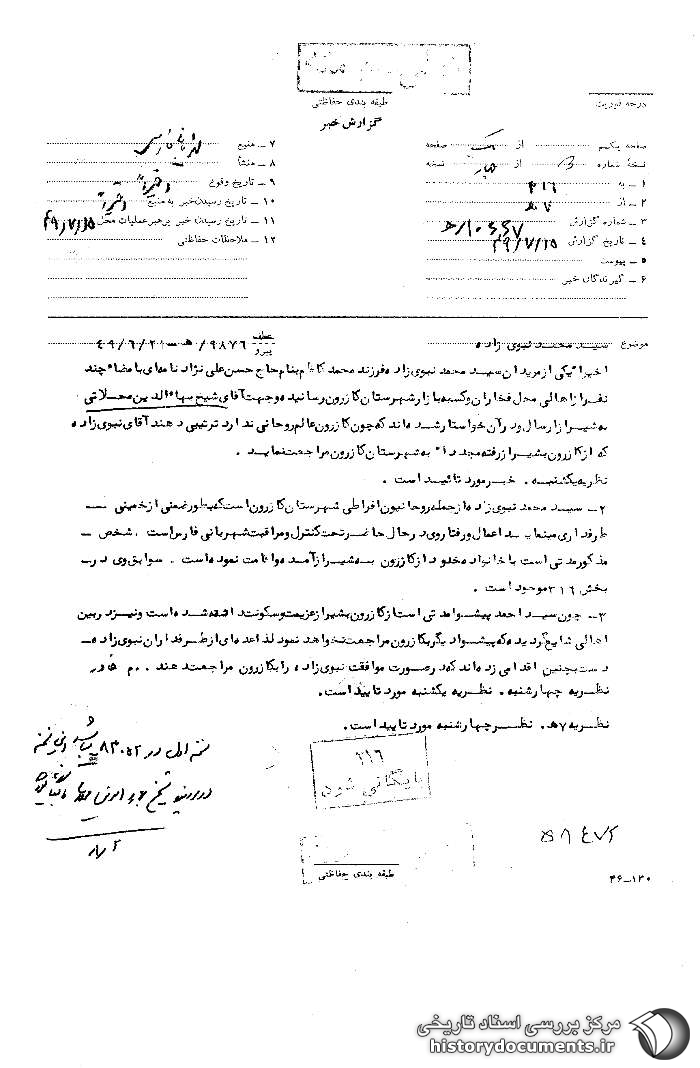 طبقه بندی حفاظتی
گزارش خبر
درجه فوریت
صفحه یکم از یک صفحه
نسخه شماره 3 از چهار نسخه
۱ ـ به ۳۱۶
۲ ـ از ۷ هـ
۳ ـ شماره گزارش
۴ ـ تاریخ گزارش ۴۹/۷/۲۵
۵ ـ پیوست
۶ ـ گیرندگان خبر
۷ ـ منبع
۸ ـ منشأ
۹ ـ تاریخ وقوع اخیراً
۱۰ ـ تاریخ رسیدن خبر به منبع اخیراً
۱۱ ـ تاریخ رسیدن خبر به رهبر عملیات محل ۴۹/۷/۲۵
۱۲ ـ ملاحظات حفاظتی
موضوع سید محمد نبوی زاده
عطف پیرو ۹۸۷۶/ هـ ۴۹/۶/۲۱
اخیراً یکی از مریدان سید محمد نبوی زاده فرزند محمد کاظم بنام حاج حسن علی نژاد نامه‌ای با مضاء چند
نفر از اهالی محل فخاران و کسبه بازار شهرستان کازرون رسانیده و جهت آقای شیخ بهاءالدین محلاتی
به شیراز ارسال و در آن خواستار شده‌اند که چون کازرون عالم روحانی ندارد ترتیبی دهند آقای نبوی زاده
که از کازرون بشیراز رفته مجدداً به شهرستان کازرون مراجعت نماید .
نظریه یکشنبه . خبر مورد تائید است .
۲ـ سید محمد نبوی زاده از جمله روحانیون افراطی شهرستان کازرون است که بطور ضمنی از خمینی
طرفداری مینماید اعمال و رفتار وی در حال حاضر تحت کنترل و مراقبت شهربانی فارس است . شخص
مذکور مدتی است با خانواده خود از کازرون به شیراز آمده و اقامت نموده است . سوابق وی در
بخش ۳۱۶ موجود است .
۳ـ چون سید احمد پیشوا مدتی است از کازرون بشیراز عزیمت و سکونت داشته شده است و نیز در بین
اهالی شایع گردیده که پیشوا دیگر بکازرون مراجعت نخواهد نمود لذا عده‌ای از طرفداران نبوی زاده
دست بچنین اقدامی زده‌اند که در صورت موافقت نبوی زاده را بکازرون مراجعت دهند .
نظریه چهارشنبه . نظریه یکشنبه مورد تایید است .
نظریه ۷هـ . نظر چهارشنبه مورد تایید است .
۳۱۶
بایگانی شود
طبقه بندی حفاظتی
۳۶ـ۱۲۰
مرکز بررسی اسناد تاریخی
historydocuments.ir